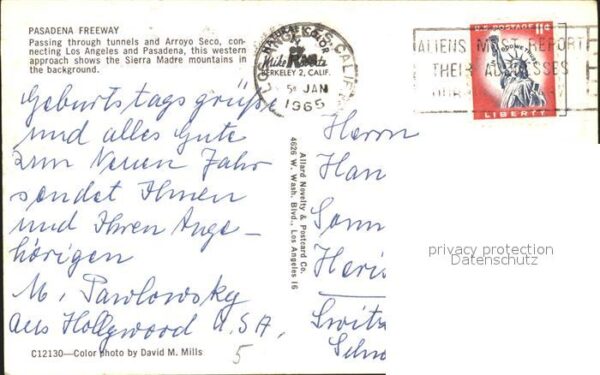 PASADENA FREEWAY
Passing through tunnels and Arroyo Seco, con-
necting Los Angeles and Pasadena, this western
approach shows the Sierra Madre mountains in
the background.
COLOR
Mike Roberts
BERKELEY 2, CALIF.
CALIF.
5 JAN
1965
U.S. POSTAGE 11¢
LIBERTY
ALIENS MUST REPORT
THEIR ADDRESSES
Geburtstagsgrüße
und alles Gute
zum Neuen Jahr
sendet Ihnen
und Ihren Ange-
hörigen
M. Pawlowsky
aus Hollywood U.S.A.
C12130—Color photo by David M. Mills
5
Allard Novelty & Postcard Co.
4626 W. Wash. Blvd., Los Angeles 16
Herrn
Han
Sonn
Heris
Switz
Schw
privacy protection
Datenschutz